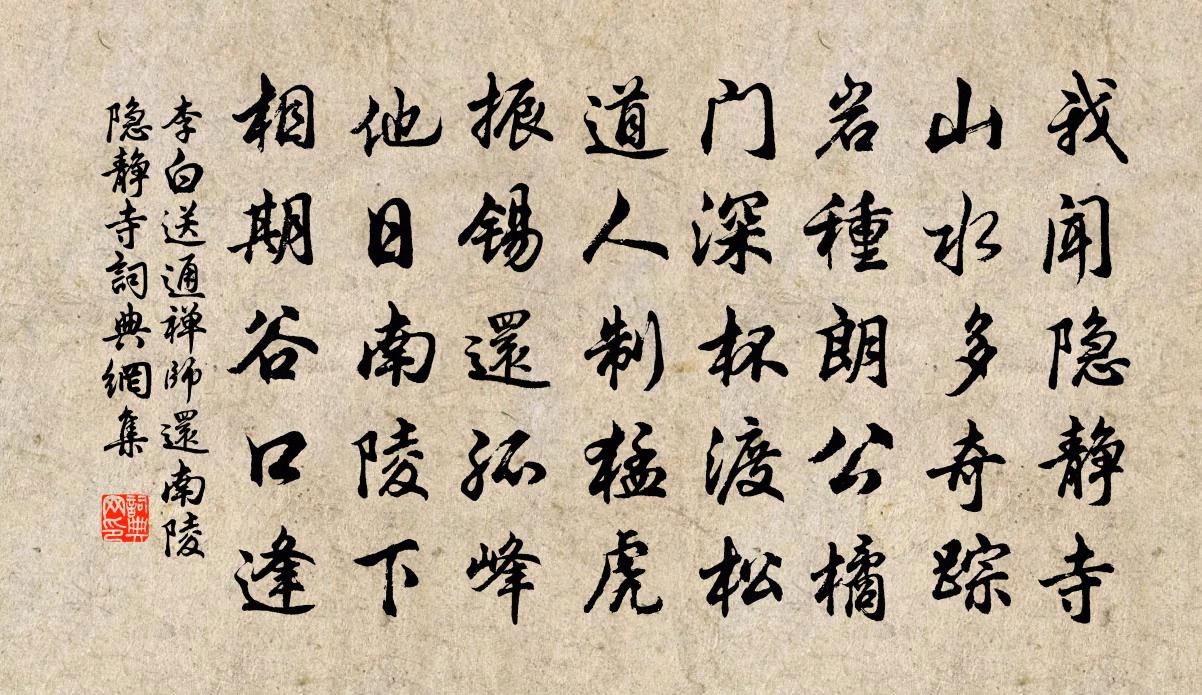 我闻隐静寺
山水多奇踪
岩種朗公橘
门深杯渡松
道人制猛虎
振锡還孤峰
他日南陵下
相期谷口逢
李白送通禅师還南陵
隐静寺詞典網集
詞典网印